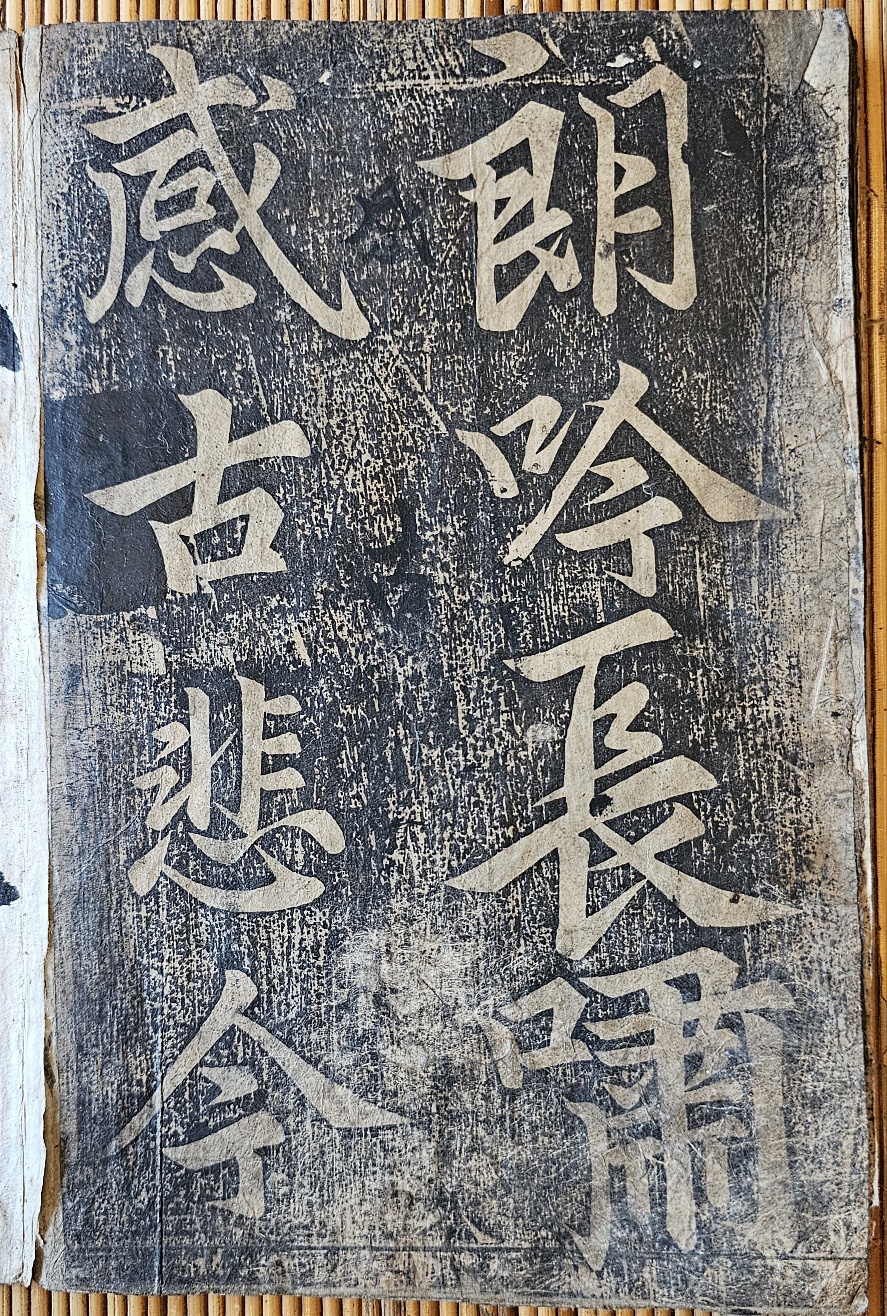 朗吟長嘯
感古悲今